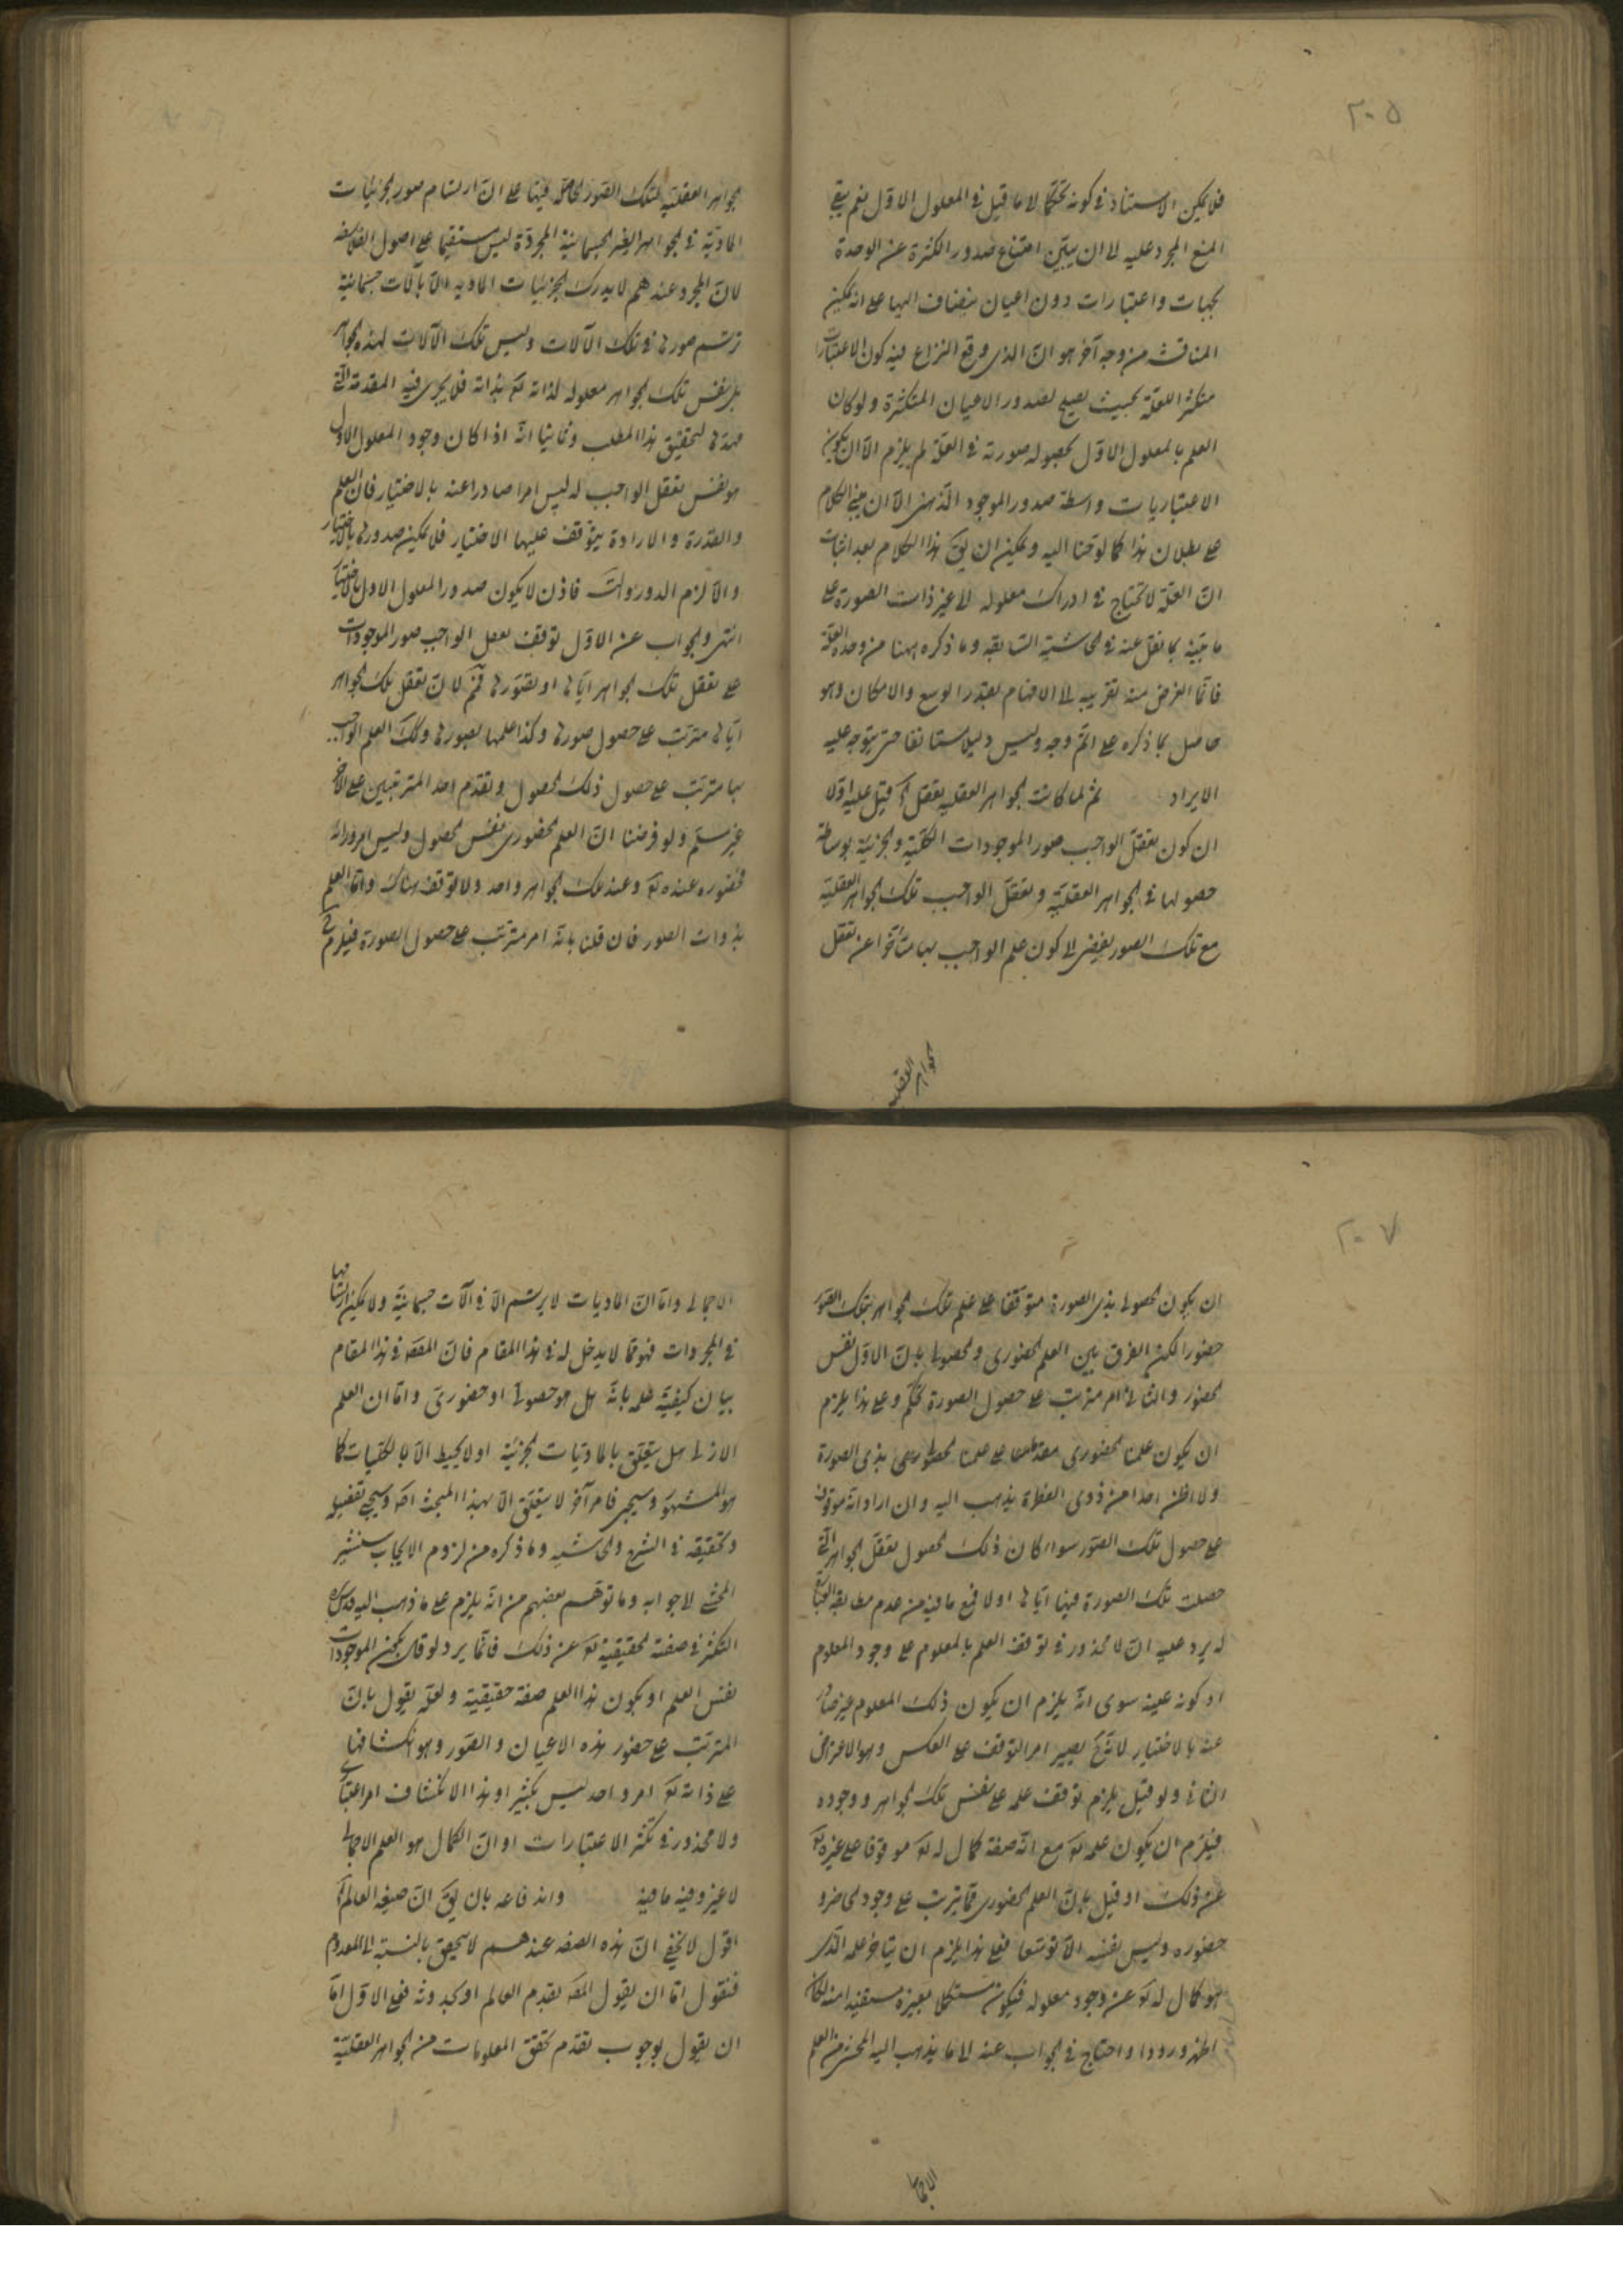 ٢٠٥
فلا يمكن الاستناد في كونه تحكما لا ما قيل في المعلول الاول نعم يبقى
المنع المجرد عليه الى ان يبين امتناع صدور الكثرة عن الوحدة
بجهات واعتبارات دون اعيان ينضاف اليها على انه يمكن
المناقشة من وجه آخر هو ان الذى وقع النزاع فيه كون الاعتبارات
متكثر العلة بحيث يصح لصدور الاعيان المتكثرة ولو كان
العلم بالمعلول الاول بحصول صورته في العلة لم يلزم الا ان يكون
الاعتباريات واسطة صدور الموجود الذهنى الا ان مبنى الكلام
على بطلان هذا كما لوحنا اليه ويمكن ان يق هذا الكلام بعد اثبات
ان العلة لا تحتاج في ادراك معلوله الى غير ذات الصورة على
ما بينه بما نقل عنه في الحاشية السابقه وما ذكره ههنا من وحدة العلة
فانما الغرض منه تقريبه الى الافهام بقدر الوسع والامكان وهو
حاصل بما ذكره على اتم وجه وليس دليلا مستانفا حتى يتوجه عليه
الايراد ثم لما كانت الجواهر العقليه تعقل آه قيل عليه اولا
ان كون تعقل الواجب صور الموجودات الكلية والجزئية بوساطة
حصولها في الجواهر العقلية وتعقل الواجب تلك الجواهر العقلية
مع تلك الصور يفضى الى كون علم الواجب بها متأخرا عن تعقل
الجواهر العقلية
الجواهر العقلية لتلك الصور الحاصلة فيها على ان ارتسام صور الجزئيات
المادية في الجواهر الغير الجسمانية المجردة ليس مستقيما على اصول الفلاسفه
لان المجرد عندهم لا يدرك الجزئيات الماديه الا بآلات جسمانية
ترتسم صورها في تلك الآلات وليس تلك الآلات لهذه الجواهر
بل نفس تلك الجواهر معلوله لذاته تع بذاته فلا يجرى فيه المقدمة التى
مهدها لتحقيق هذا المطلب وثانيا انه اذا كان وجود المعلول الاول
هو نفس تعقل الواجب له ليس امرا صادرا عنه بالاختيار فان العلم
والقدرة والارادة يتوقف عليها الاختيار فلا يمكن صدورها بالاختيار
والا لزم الدور والت فاذن لا يكون صدور المعلول الاول بالاختيار
انتهى والجواب عن الاول توقف تعقل الواجب صور الموجودات
على تعقل تلك الجواهر اياها او تصورها فمم لان تعقل تلك الجواهر
اياها مترتب على حصول صورها وكذا علمها بصورها وكك العلم الواجب
بها مترتب على حصول ذلك الحصول وتقدم احد المترتبين على الاخر
غير مسلم ولو فرضنا ان العلم الحضورى نفس الحصول وليس امرا وراءه
فحضوره عنده تع وعند تلك الجواهر واحد ولا توقف هناك واما العلم
بذوات الصور فان قلنا بانه امر مترتب على حصول الصورة فيلزم ح
٢٠٧
ان يكون الحصولى بذى الصورة متوقفا على علم تلك الجواهر بتلك الصور
حضورا لكن الفرق بين العلم الحضورى والحصولى بان الاول نفس
الحضور والثانى امر مترتب على حصول الصورة تحكم وعلى هذا يلزم
ان يكون علمنا الحضورى مقدما على علمنا الحصولى بذى الصورة
ولا اظن احدا من ذوى الفطرة يذهب اليه وان اراد انه موقوف
على حصول تلك الصور سواء كان ذلك الحصول تعقل الجواهر التى
حصلت تلك الصورة فيها اياها او لا فمع ما فيه من عدم مطابقة العبارة
له يرد عليه ان لا محذور في توقف العلم بالمعلوم على وجود المعلوم
او كونه عينه سوى انه يلزم ان يكون ذلك المعلوم غير صادر
عنه بالاختيار لانه ح يصير امر التوقف على العكس وهو الاعتراض
الثانى ولو قيل يلزم توقف علمه على نفس تلك الجواهر ووجوده
فيلزم ان يكون علمه تع مع انه صفة كمال له تع موقوفا على غيره تع
عن ذلك او قيل بان العلم الحضورى مما يترتب على وجود الحاضر و
حضوره وليس نفسه الا توسعا فعلى هذا يلزم ان يتاخر علمه الذى
هو كمال له تع عن وجود معلوله فيكون مستكملا بغيره مستفيدا منه لكان
اظهر ورودا واحتاج في الجواب عنه الى ما يذهب اليه المحشى من العلم
الاجمالى
الاجمالى واما ان الماديات لا يرتسم الا في آلات جسمانية ولا يمكن ارتسامها
في المجردات فهو مما لا يدخل له في هذا المقام فان المقص في هذا المقام
بيان كيفية علمه بانه هل هو حصولى او حضورى واما ان العلم
الازلى هل يتعلق بالماديات الجزئية او لا يحيط الا بالكليات كما
هو المشهور وسيجى فامر آخر لا يتعلق الا بهذا المبحث اصلا وسيجى تفصيله
وتحقيقه في الشرح والحاشيه وما ذكره من لزوم الايجاب سيشير
المحشى لا جوابه وما توهم بعضهم من انه يلزم على ما ذهب اليه قدس سره
التكثر في صفته الحقيقية تع عن ذلك فانما يرد لو قال بكون الموجودات
نفس العلم او بكون هذا العلم صفة حقيقية ولعله يقول بان
المترتب على حضور هذه الاعيان والصور وهو انكشافها
على ذاته تع امر واحد ليس بكثير او هذا الانكشاف امر اعتبارى
ولا محذور في تكثر الاعتبارات او ان الكمال هو العلم الاجمالى
لا غير وفيه ما فيه واندفاعه بان يق ان صيغه العالم آه
اقول لا يخفى ان هذه الصفه عندهم لا يتحقق بالنسبة الى المعدوم
فنقول اما ان يقول المص بقدم العالم او بحدوثه فعلى الاول اما
ان يقول بوجوب تقدم تحقق المعلومات من الجواهر العقلية